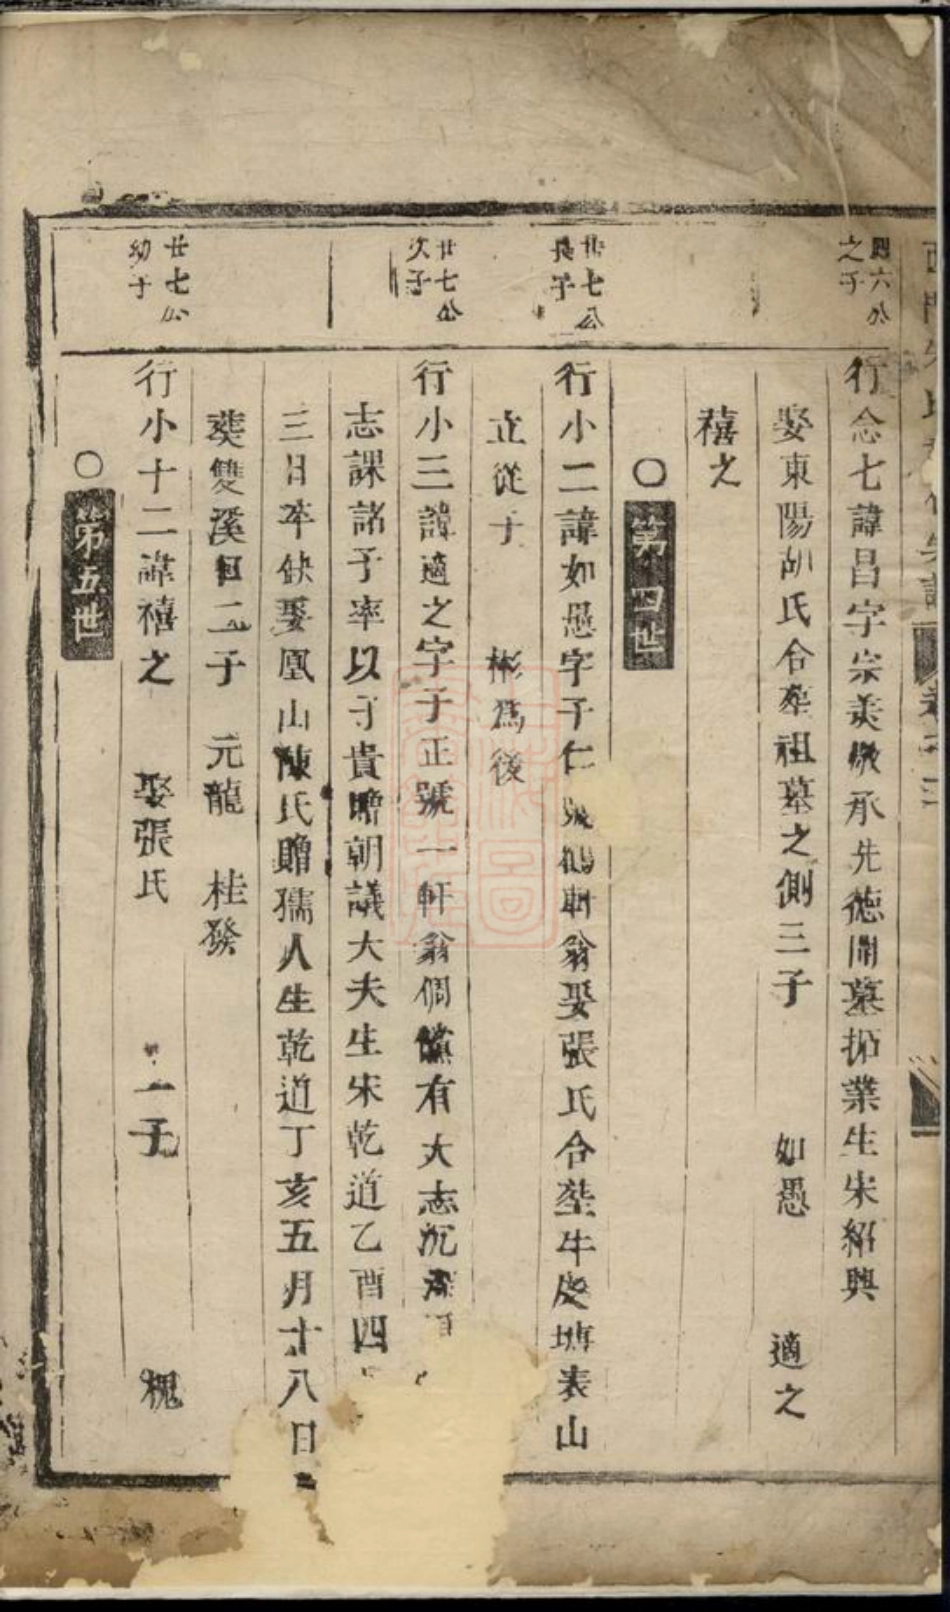 六公
之子
行念七諱昌字宗美 承先德開墓拓業生宋紹興
娶東陽胡氏合葬祖墓之側三子 如愚 適之
禧之
○第四世
廿七公
長子
行小二諱如愚字子仁號 軒翁娶張氏合塟牛 塘表山
立從子 彬為後
廿七公
次子
行小三諱適之字子正號一軒翁倜儻有大志沉
志課諸子率以子貴贈朝議大夫生宋乾道乙酉四
三日卒缺娶凰山陳氏贈孺人生乾道丁亥五月十八日
葵雙溪 二子 元龍 桂發
廿七公
幼子
行小十二諱禧之 娶張氏 一子 槐
○第五世